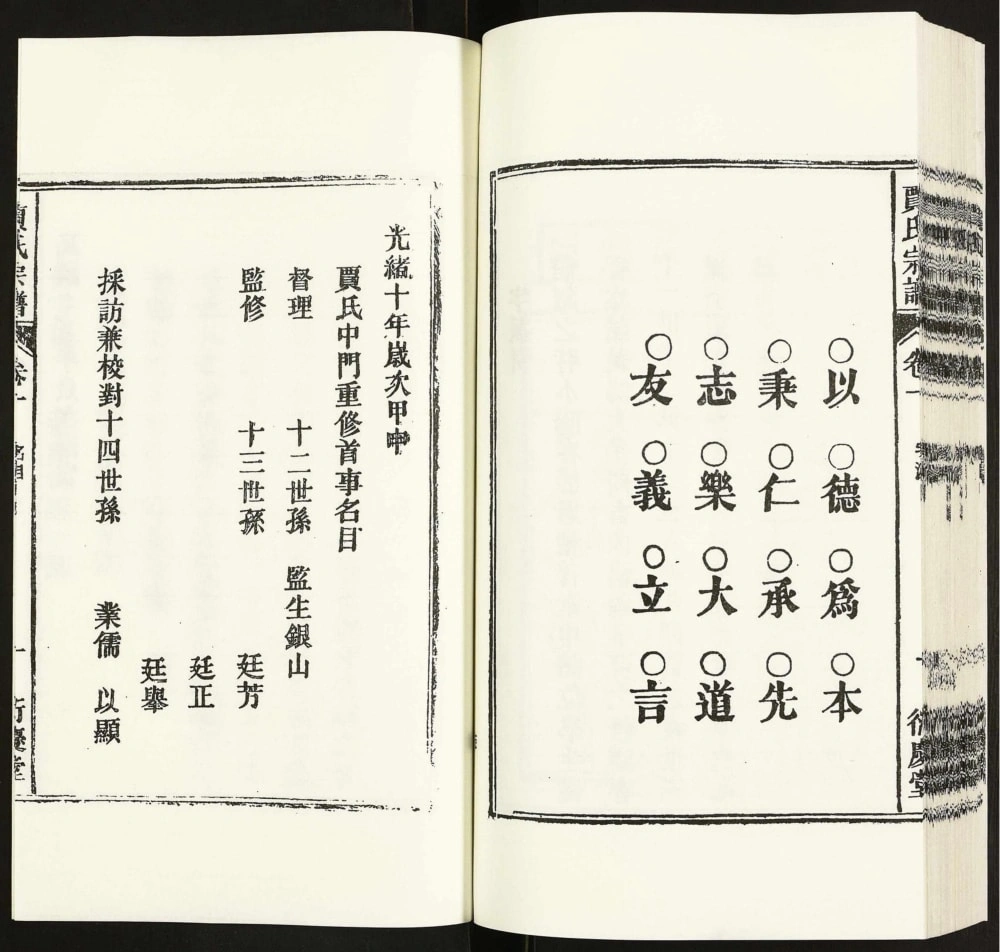 賈氏宗譜 卷一
○以○德○爲○本
○秉○仁○承○先
○志○樂○大○道
○友○義○立○言
光緒十年歲次甲申
賈氏中門重修首事名目
督理 十二世孫 監生銀山
監修 十三世孫 廷芳
廷正
廷舉
採訪兼校對十四世孫 業儒 以顯
賈氏宗譜 卷一